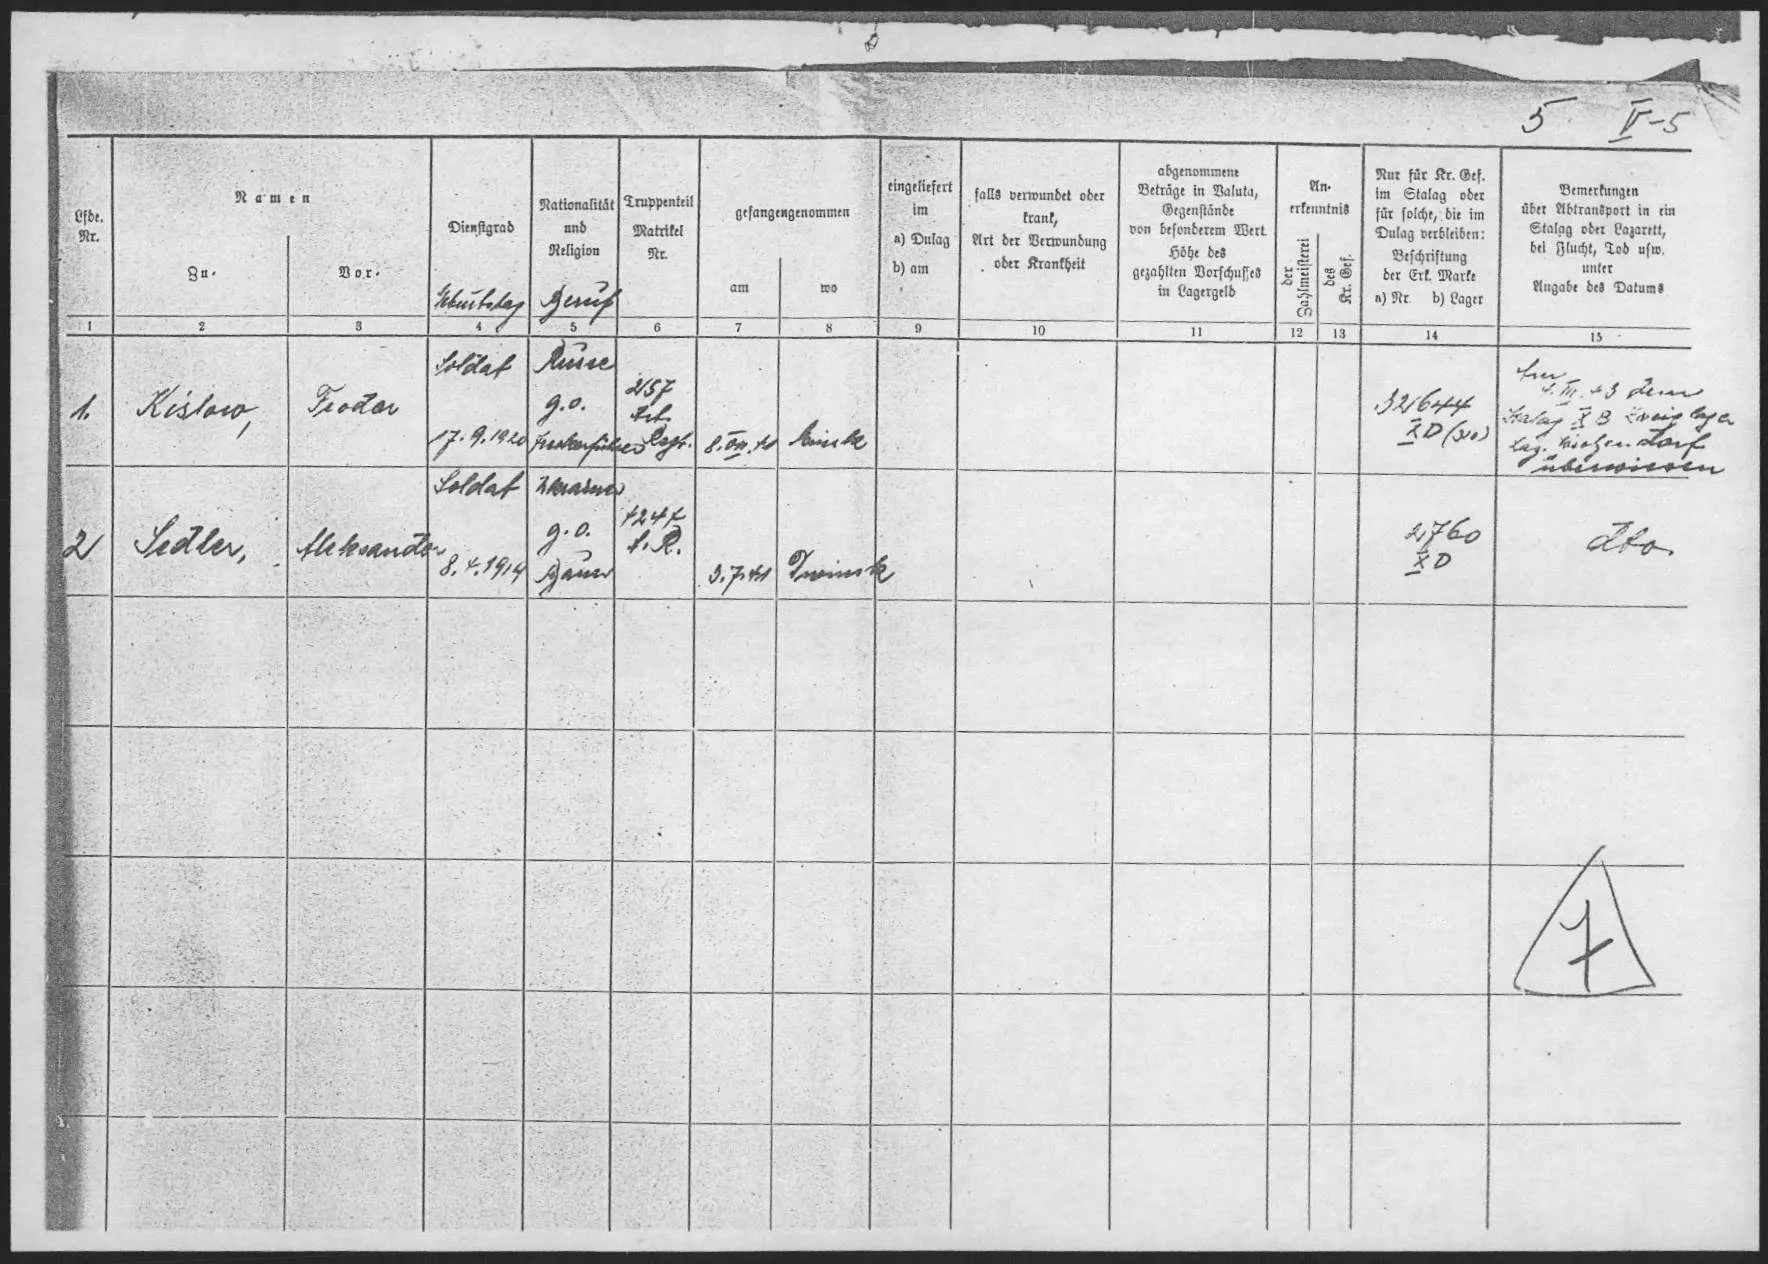 5 IV-5
Lfde. Nr.
Namen
Zu-
Vor-
Dienstgrad
Geburtstag
Nationalität
und
Religion
Beruf
Truppenteil
Matrikel
Nr.
gefangengenommen
am
wo
eingeliefert
im
a) Dulag
b) am
falls verwundet oder
krank,
Art der Verwundung
oder Krankheit
abgenommene
Beträge in Valuta,
Gegenstände
von besonderem Wert
Höhe des
gezahlten Vorschusses
in Lagergeld
An-
erkenntnis
der Zahlmeisterei
des Kr. Gef.
Nur für Kr. Gef.
im Stalag oder
für solche, die im
Dulag verbleiben:
Beschriftung
der Erk. Marke
a) Nr. b) Lager
Bemerkungen
über Abtransport in ein
Stalag oder Lazarett,
bei Flucht, Tod usw.
unter
Angabe des Datums
1 2 3 4 5 6 7 8 9 10 11 12 13 14 15
1. Kislow, Feodor
Soldat
17.9.1920
Russe
g.o.
257
Art.
Regt.
8.VII.41 Minsk
32644
XD (310)
4.III.43 dem
Stalag XB Zweiglager
überwiesen
2 Sedler, Aleksander
Soldat
8.4.1914
g.o.
Bauer
3.7.41 Dwinsk
2760
XD
dto.
7